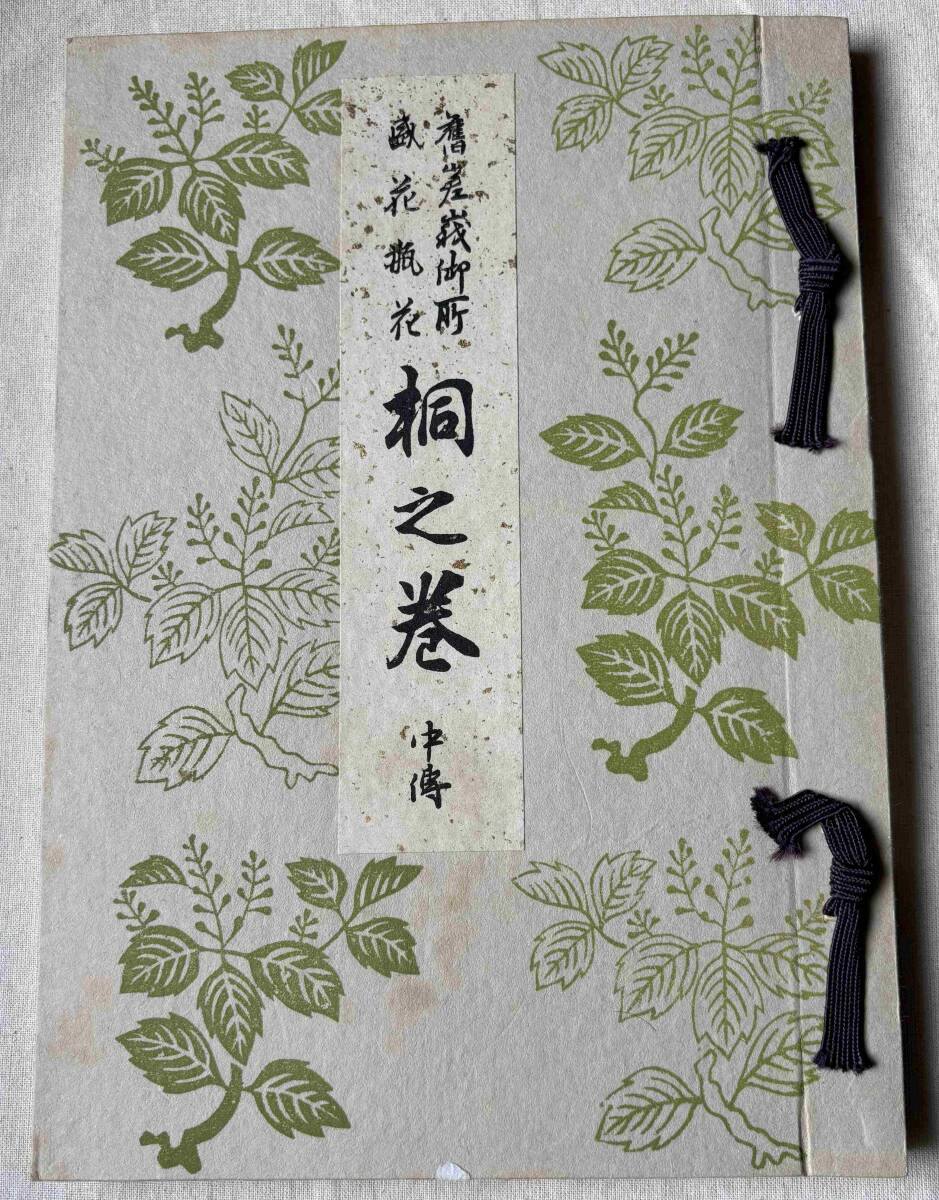 舊嵳峩御所
盛花瓶花
桐之巻
中傳